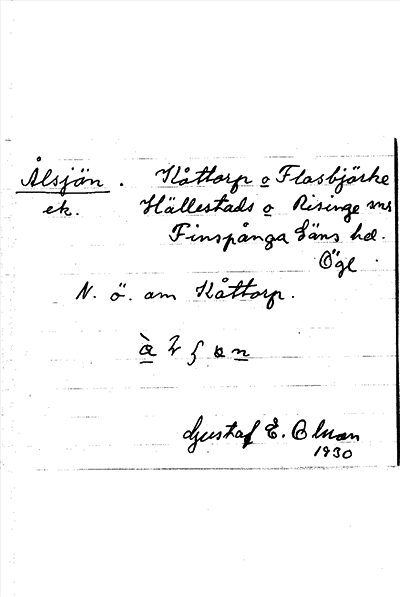 Ålsjön. Kåttorp o Flasbjörke
ek. Hällestads o Risinge snr
Finspånga läns hd.
Ögl
N. ö. om Kåttorp.
Gustaf E. Olman
1930